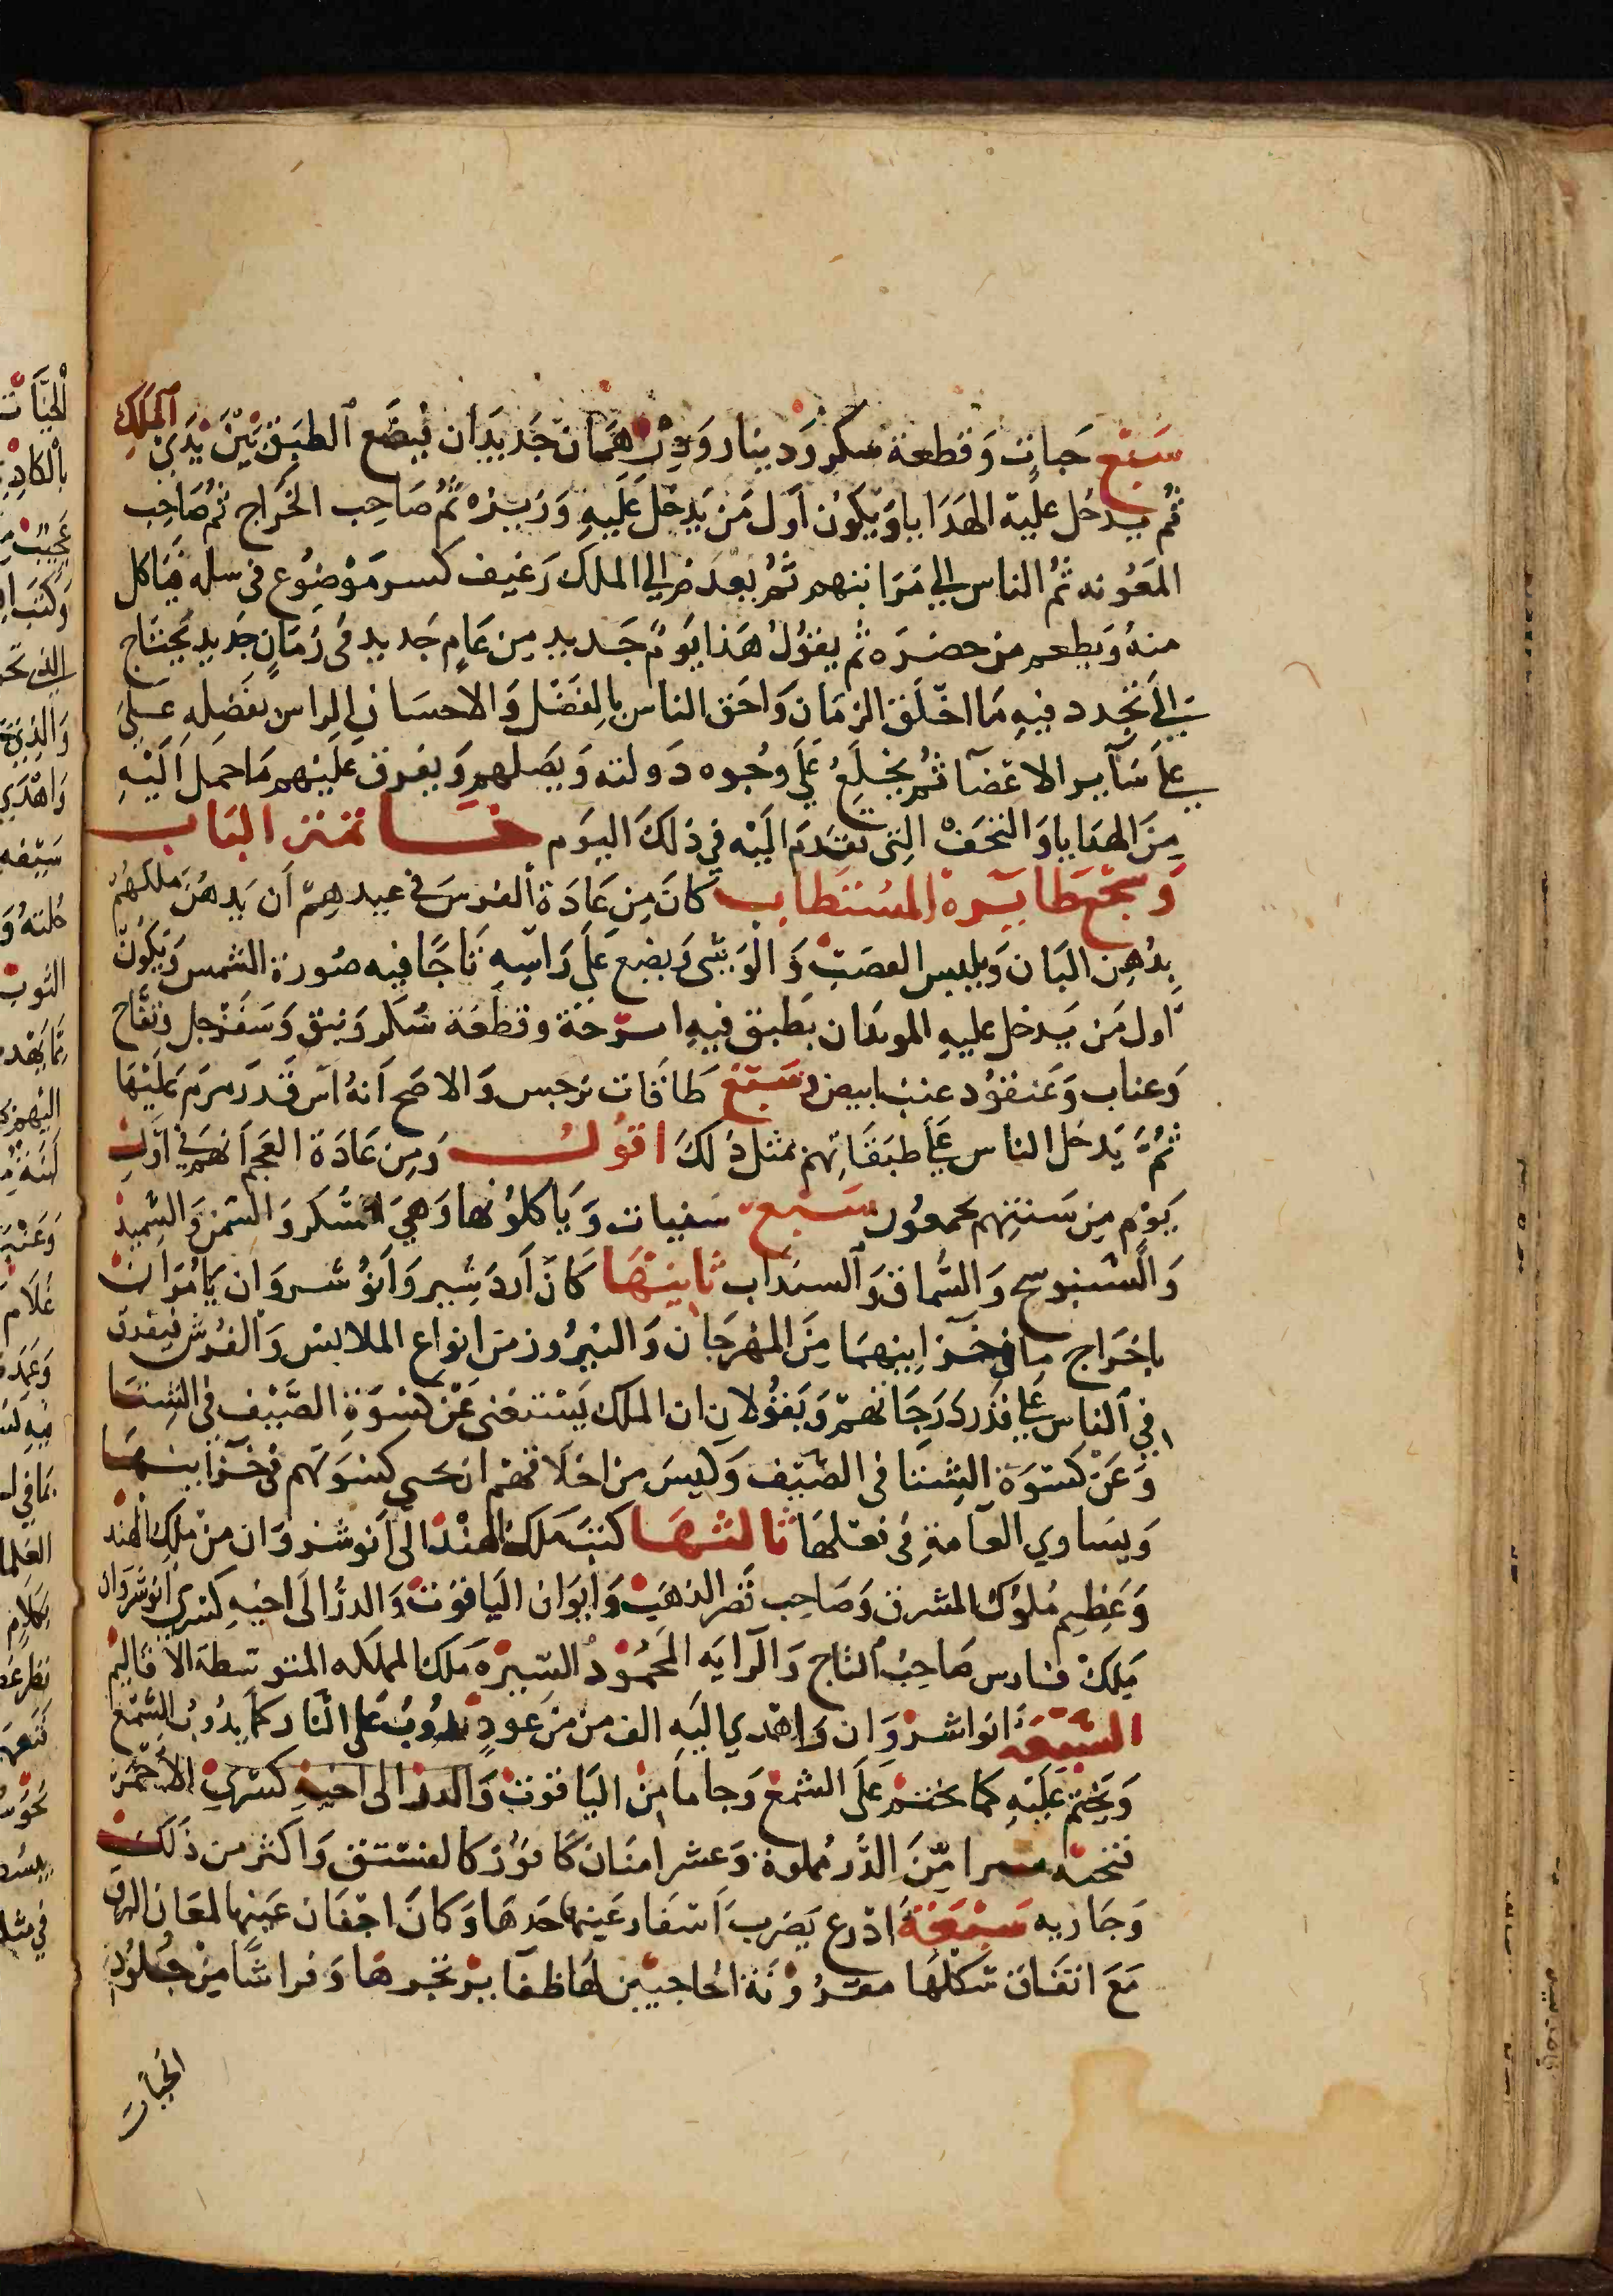 سبع حبات وقطعة سكر ودينار ودرهمان جديدان فيضع الطبق بين يدي الملك
ثم يدخل عليه الهدايا ويكون اول من يدخل عليه وزيره ثم صاحب الخراج ثم صاحب
المعونه ثم الناس الي مراتبهم ثم بعد ض الي الملك رغيف كسر موضوع في سله فياكل
منه ويطعم من حضره ثم يقول هذا يوم جديد من عام جديد في زمان جديد يحتاج
الي تجدد فيه ما اخلق الزمان واحق الناس بالفضل والاحسان الراس بفضله علي
علي ساير الاعضا ثم يخلع علي وجوه دولته ويصلهم ويفرق عليهم ما حمل اليه
من الهدايا والتحف التي تقدم اليه في ذلك اليوم خاتمتر الباب
وسجع طايره المستطاب كان من عادة الفرس في عيدهم ان يدهن ملكهم
بدهن البان ويلبس القصب والوشي ويضع علي راسه تاجا فيه صورة الشمس ويكون
اول من يدخل عليه الموبدان بطبق فيه اترجة وقطعة سكر ونبق وسفرجل وتفاح
وعناب وعنقود عنب ابيض وسبع طاقات نرجس والاصح انه اس قد زمزم عليها
ثم يدخل الناس علي طبقاتهم بمثل ذلك اقول ومن عادة العجم انهم في اول
يوم من سنتهم يجمعون سبع سفيات وياكلونها وهي السكر والسمن والسميد
والسنبوسج والسماق والسنداب ثانيتها كان اردشير وانوشروان يامران
باخراج ما في خزاينهما من المهرجان والنيروز من انواع الملابس والفرش فيفرق
في الناس علي قدر درجاتهم ويقولان ان الملك يستغني عن كسوة الصيف في الشتا
وعن كسوة الشتا في الصيف وليس من اخلاقهم ان تحبى كسوتهم في خزاينها
ويساوي العامة في فعلها ثالثها كتب ملك الهند الي انوشروان من ملك الهند
وعظيم ملوك المشرق وصاحب قصر الذهب وابوان الياقوت والدر الي اخيه كسري انوشروان
ملك فارس صاحب التاج والرايه المحمود السيره ملك المملكه المتوسطة الاقاليم
السبعه انواشروان واهدي اليه الف من من عود يذوب علي النار كما يذوب الشمع
ويختم عليه كما يختم علي الشمع وجاما من الياقوت والدر الي اخيه كسري الاحمر
فتحته من الدر مملوة وعشر امنان كافور كالفستق واكثر من ذلك
وجاريه سبعة اذرع يضرب اشفار عينها خدها وكان اجفان عينها لمعان البرق
مع اتقان شكلها مقرونة الحاجبين لها ظفاير تجرها وفراشا من جلود
الحيات